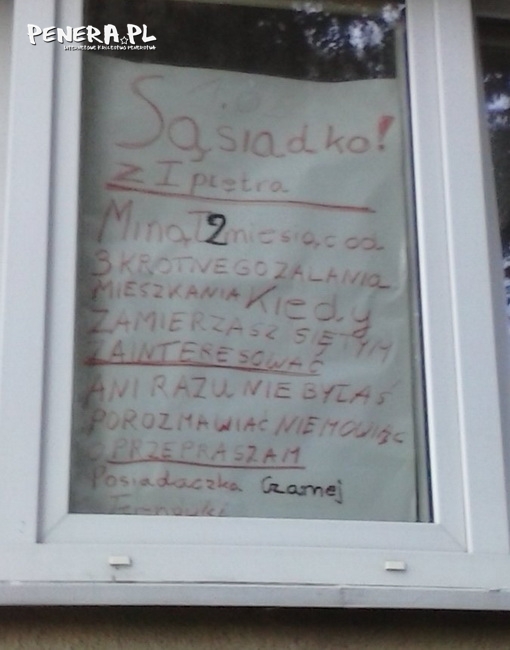 PENERA.PL
Sąsiadko!
z I piętra
Minął 2 miesiąc od
3 KROTNEGO ZALANIA
MIESZKANIA Kiedy
ZAMIERZASZ SIĘ TYM
ZAINTERESOWAĆ
ANI RAZU NIE BYŁAŚ
POROZMAWIAĆ NIE MÓWIĄC
O PRZEPRASZAM
Posiadaczka Czarnej